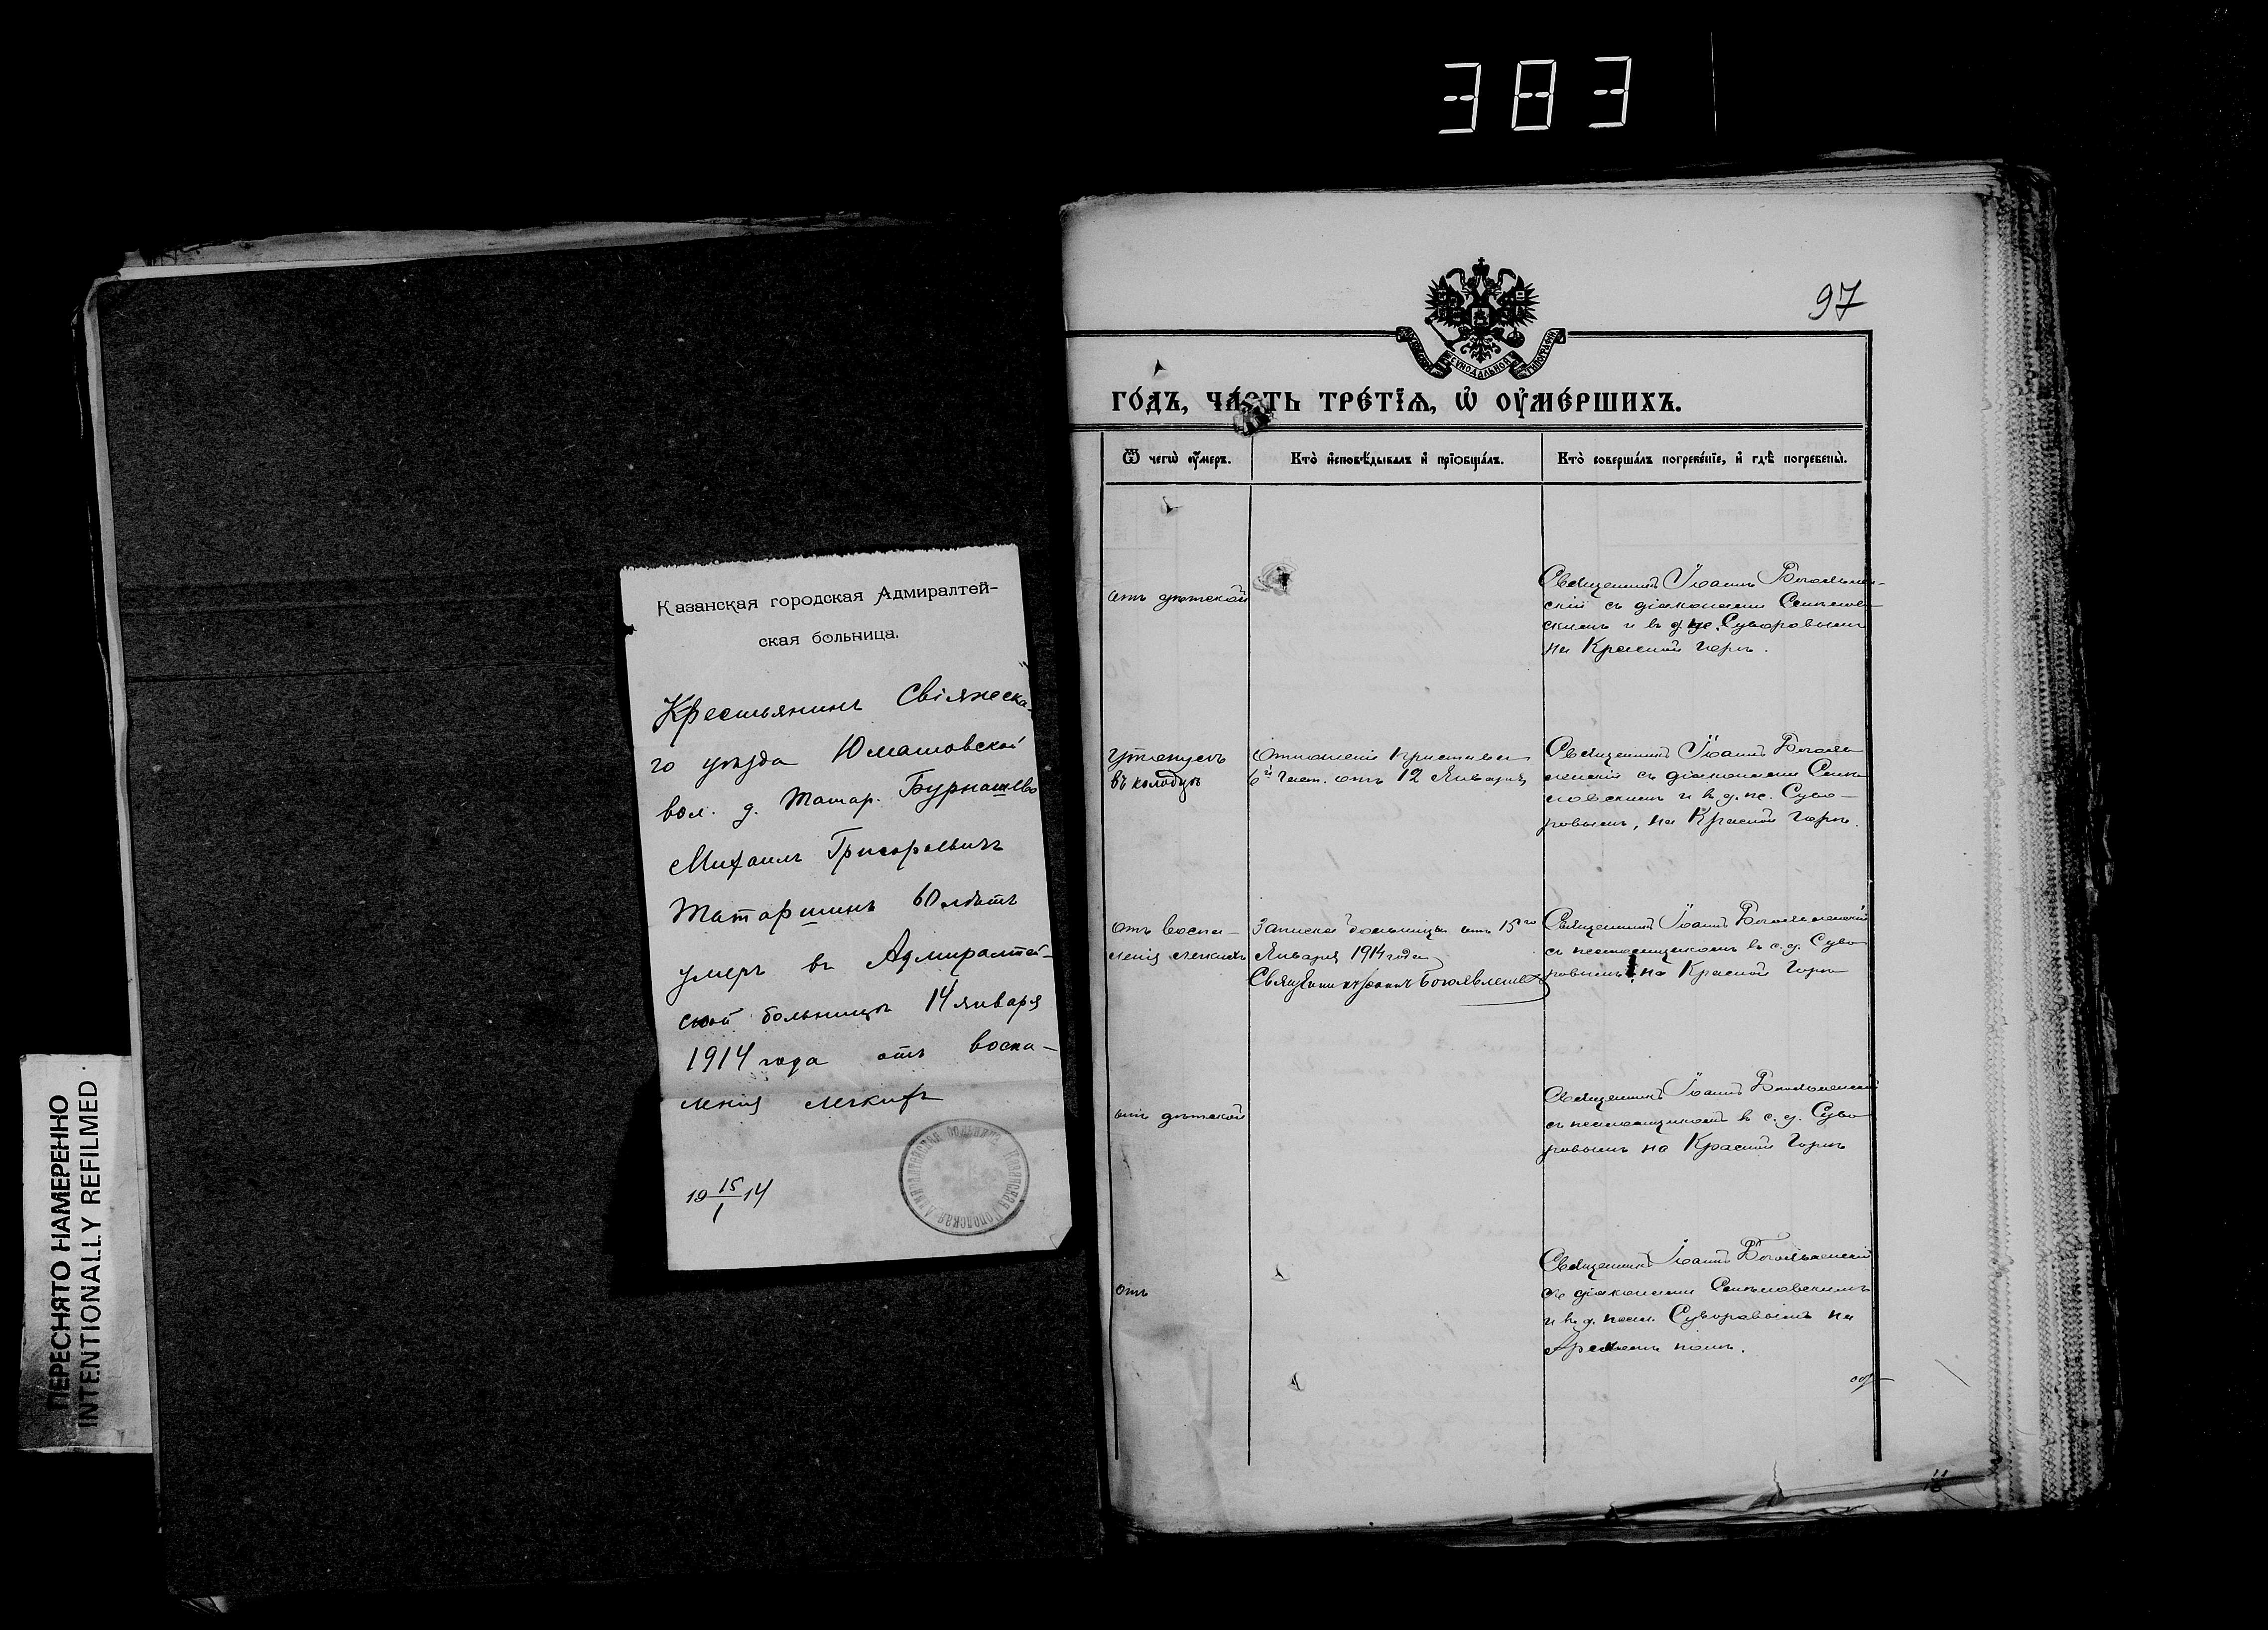 383
ПЕРЕСНЯТО НАМЕРЕННО
INTENTIONALLY REFILMED
Казанская городская Адмиралтей-
ская больница.
Крестьянинъ Свіяжска-
го уѣзда Юматовской
вол. д. Татар. Бурнашево
Михаилъ Григорьевичъ
Татаршинъ 60 лѣтъ
умеръ въ Адмиралтей-
ской больницѣ 14 января
1914 года отъ воспа-
ленія легкихъ
19 15/1 14
97
ГО́ДЪ, ЧА́СТЬ ТРЕ́ТІѦ, Ѡ҆ ОУ҆МЕ́РШИХЪ.
Ѿ чегѡ̀ оу҆́меръ.
Кто̀ и҆сповѣ́дывалъ и҆ прїобща́лъ.
Кто̀ соверша́лъ погребе́нїе, и҆ гдѣ̀ погребены̀.
отъ дѣтской
Священникъ Іоаннъ Богоявлен-
скій съ діакономъ
скимъ и в. д. пс. Суворовымъ
на Красной Горкѣ.
Утонулъ
въ колодцѣ
Отношеніе Пристава
6й Част. отъ 12 Января
Священникъ Іоаннъ Богоявл
ленскій съ діакономъ
новскимъ и в. д. пс. Суво-
ровымъ, на Красной Горкѣ.
отъ воспа-
ленія легкихъ
Записка больницы отъ 15го
Января 1914 года
Священникъ Іоаннъ Богоявленскій
Священникъ Іоаннъ Богоявленскій
съ псаломщикомъ в. с. д. Суво
ровымъ на Красной Горкѣ
отъ дѣтской
Священникъ Іоаннъ Богоявленскій
съ псаломщикомъ в. с. д. Суво
ровымъ на Красной Горкѣ
отъ
Священникъ Іоаннъ Богоявленскій
съ діакономъ
и в. д. псал. Суворовымъ на
Арскомъ полѣ.